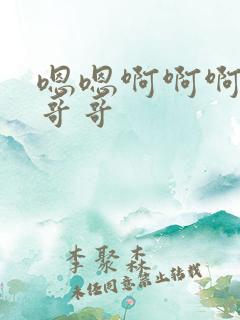 嗯嗯啊啊啊
哥哥
李聚森
未经同意禁止转载